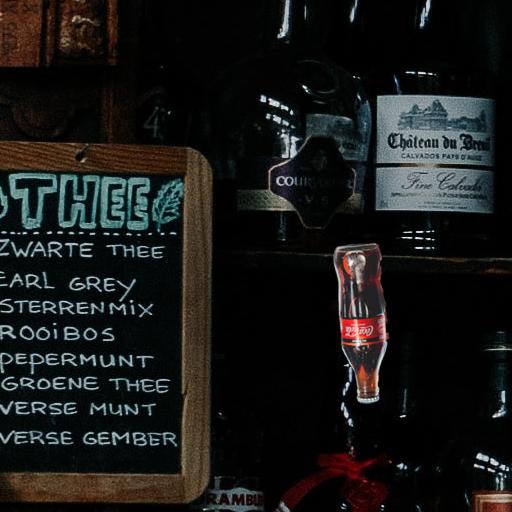 THEE
ZWARTE THEE
EARL GREY
STERRENMIX
ROOIBOS
PEPERMUNT
GROENE THEE
VERSE MUNT
VERSE GEMBER
Château du Breuil
CALVADOS PAYS D'AUGE
Fine Calvados
Coca-Cola